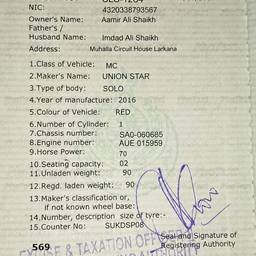 NIC: 4320338793567
Owner's Name: Aamir Ali Shaikh
Father's /
Husband Name: Imdad Ali Shaikh
Address: Muhalla Circuit House Larkana
1.Class of Vehicle: MC
2.Maker's Name: UNION STAR
3.Type of body: SOLO
4.Year of manufacture: 2016
5.Colour of Vehicle: RED
6.Number of Cylinder: 1
7.Chassis number: SA0-060685
8.Engine number: AUE 015959
9.Horse Power: 70
10.Seating capacity: 02
11.Unladen weight: 90
12.Regd. laden weight: 90
13.Maker's classification or,
if not known wheel base:
14.Number, description size of tyre:-
15.Counter No: SUKDSP08
Seal and Signature of
569 Registering Authority
EXCISE & TAXATION OFFICER